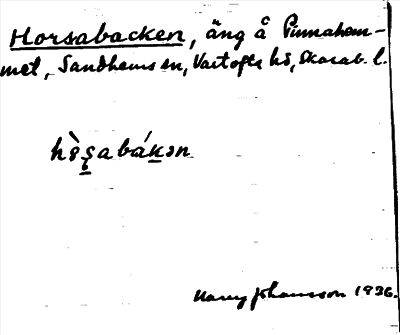 Horsabacken, äng å Pinnahem-
met, Sandhems sn, Vartofta hd, Skarab. l.
hòs̥abákən
Harry Johansson 1936.